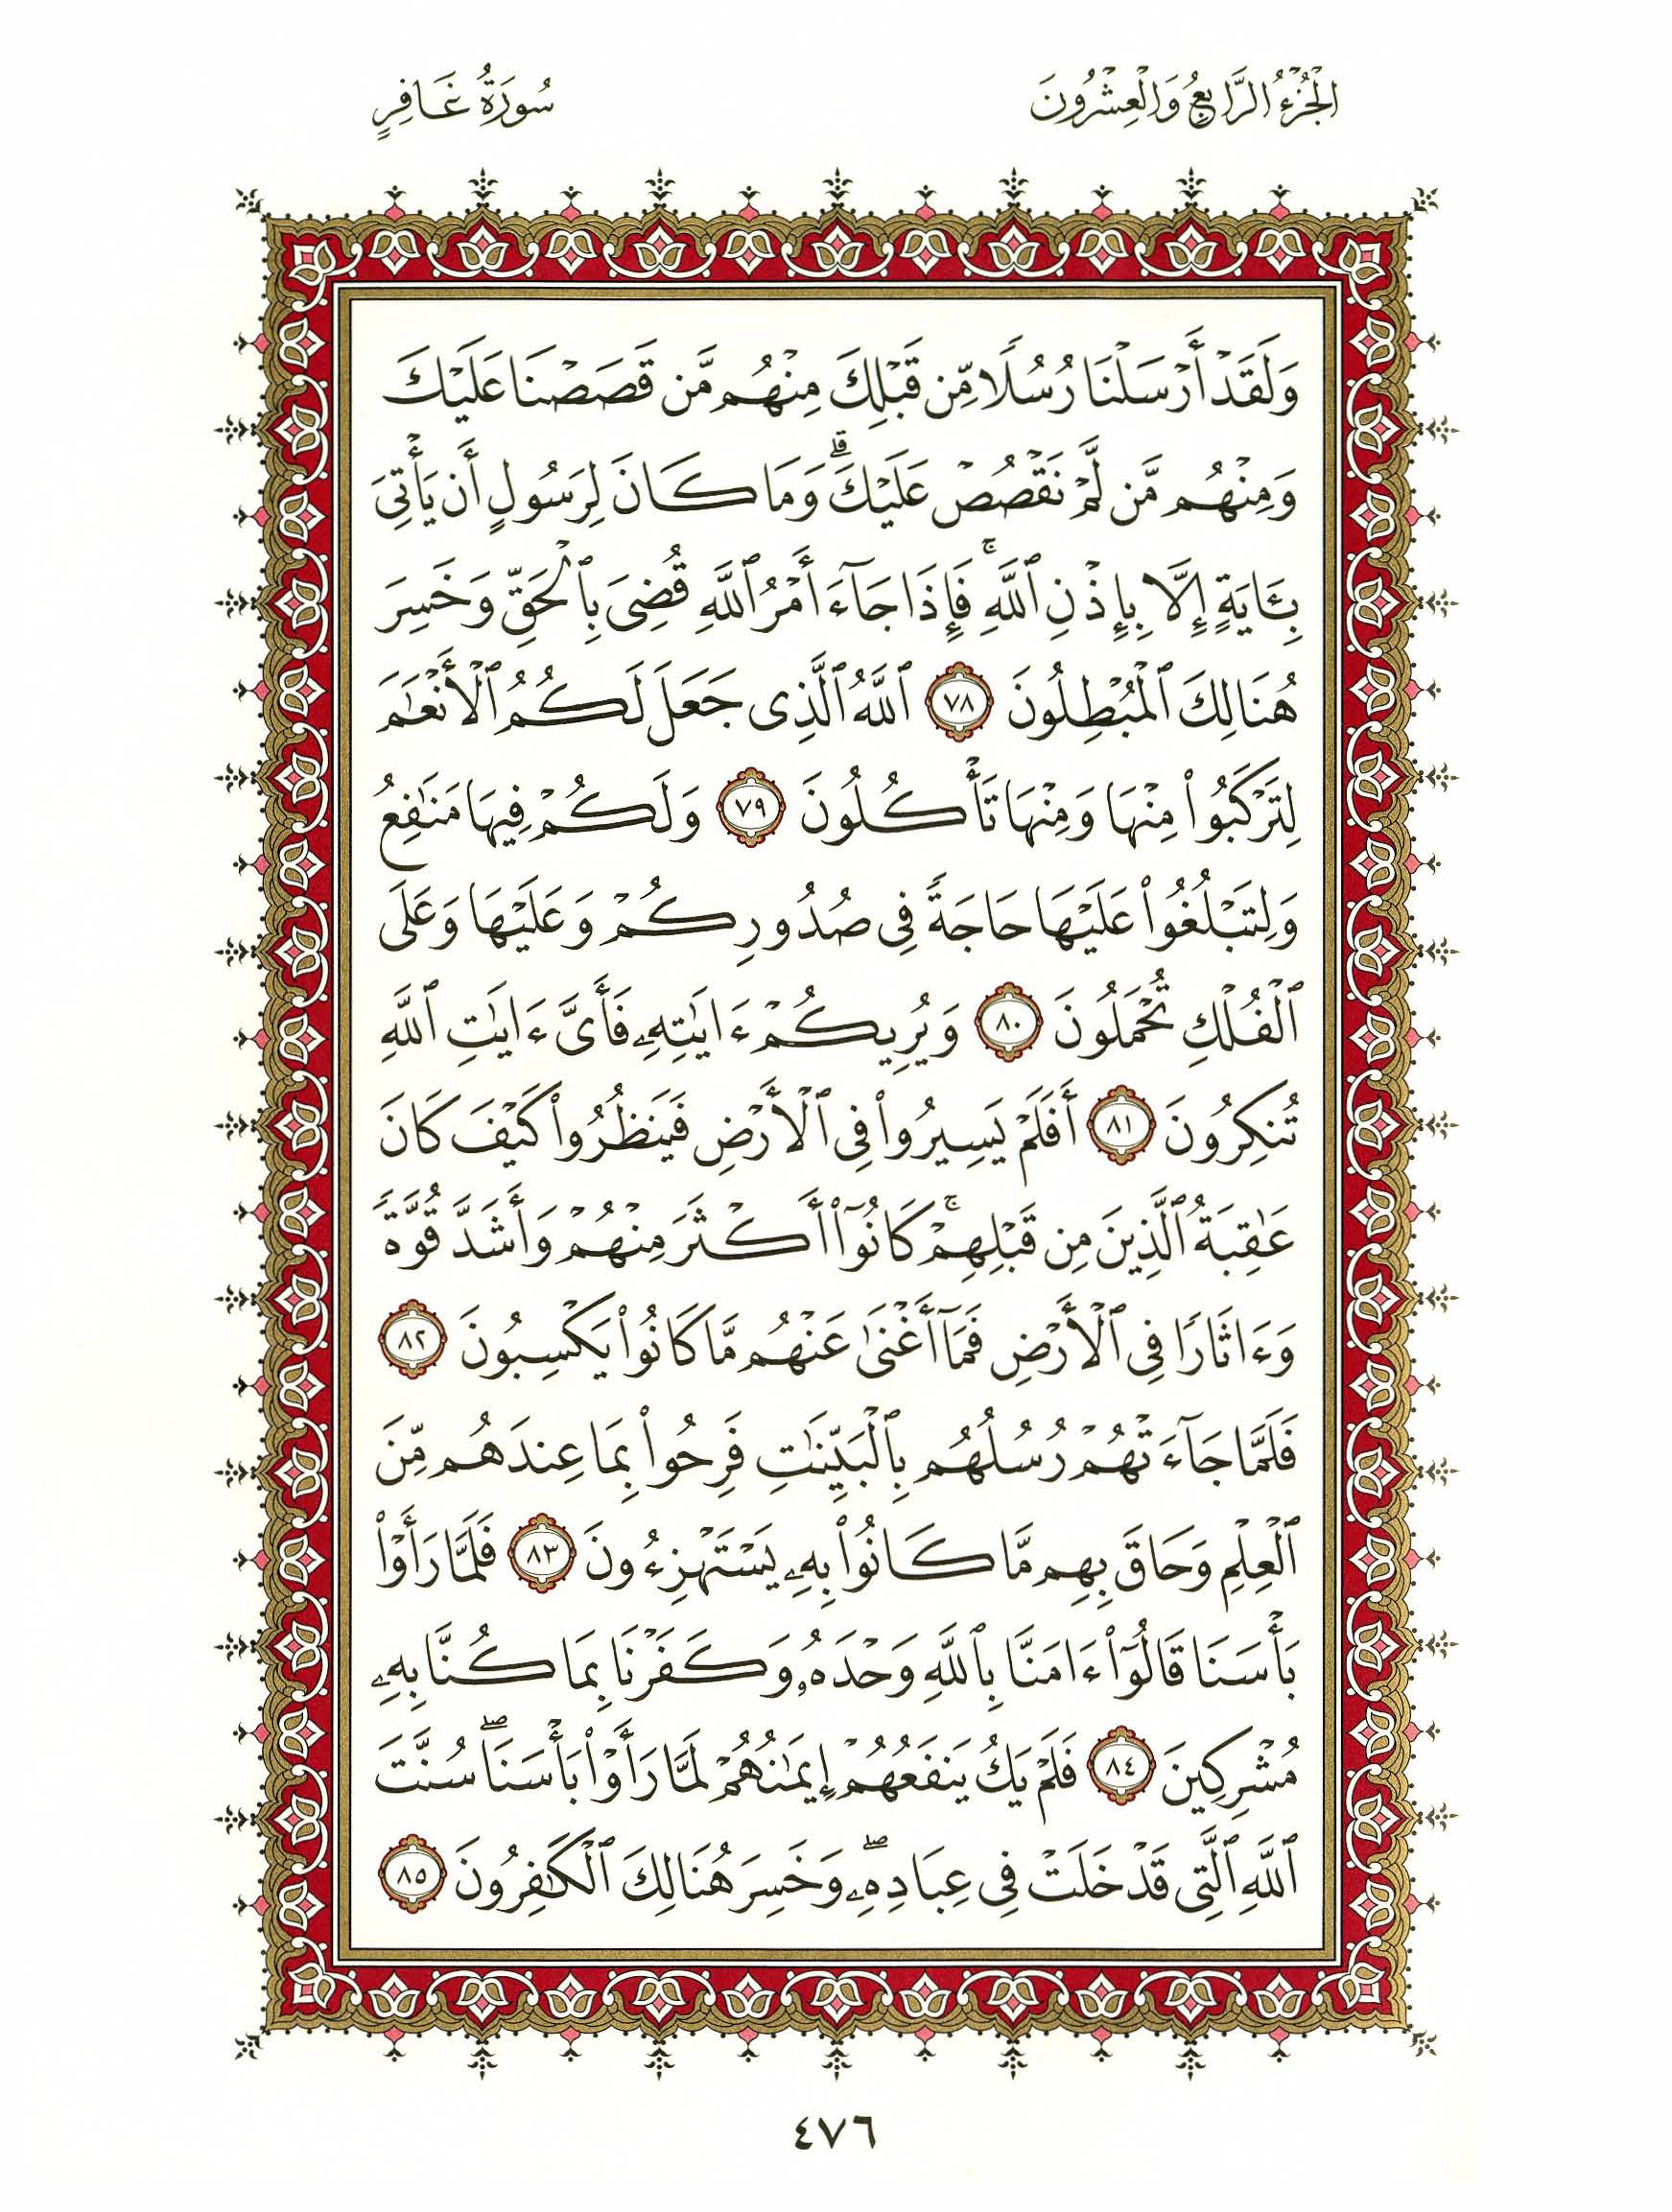 الجُزْءُ الرَّابِعُ وَالْعِشْرُونَ
سُورَةُ غَافِرٍ
وَلَقَدْ أَرْسَلْنَا رُسُلًا مِّن قَبْلِكَ مِنْهُم مَّن قَصَصْنَا عَلَيْكَ
وَمِنْهُم مَّن لَّمْ نَقْصُصْ عَلَيْكَ ۗ وَمَا كَانَ لِرَسُولٍ أَن يَأْتِىَ
بِـَٔايَةٍ إِلَّا بِإِذْنِ ٱللَّهِ ۚ فَإِذَا جَآءَ أَمْرُ ٱللَّهِ قُضِىَ بِٱلْحَقِّ وَخَسِرَ
هُنَالِكَ ٱلْمُبْطِلُونَ ٧٨ ٱللَّهُ ٱلَّذِى جَعَلَ لَكُمُ ٱلْأَنْعَٰمَ
لِتَرْكَبُوا۟ مِنْهَا وَمِنْهَا تَأْكُلُونَ ٧٩ وَلَكُمْ فِيهَا مَنَٰفِعُ
وَلِتَبْلُغُوا۟ عَلَيْهَا حَاجَةً فِى صُدُورِكُمْ وَعَلَيْهَا وَعَلَى
ٱلْفُلْكِ تُحْمَلُونَ ٨٠ وَيُرِيكُمْ ءَايَٰتِهِۦ فَأَىَّ ءَايَٰتِ ٱللَّهِ
تُنكِرُونَ ٨١ أَفَلَمْ يَسِيرُوا۟ فِى ٱلْأَرْضِ فَيَنظُرُوا۟ كَيْفَ كَانَ
عَٰقِبَةُ ٱلَّذِينَ مِن قَبْلِهِمْ ۚ كَانُوٓا۟ أَكْثَرَ مِنْهُمْ وَأَشَدَّ قُوَّةً
وَءَاثَارًا فِى ٱلْأَرْضِ فَمَآ أَغْنَىٰ عَنْهُم مَّا كَانُوا۟ يَكْسِبُونَ ٨٢
فَلَمَّا جَآءَتْهُمْ رُسُلُهُم بِٱلْبَيِّنَٰتِ فَرِحُوا۟ بِمَا عِندَهُم مِّنَ
ٱلْعِلْمِ وَحَاقَ بِهِم مَّا كَانُوا۟ بِهِۦ يَسْتَهْزِءُونَ ٨٣ فَلَمَّا رَأَوْا۟
بَأْسَنَا قَالُوٓا۟ ءَامَنَّا بِٱللَّهِ وَحْدَهُۥ وَكَفَرْنَا بِمَا كُنَّا بِهِۦ
مُشْرِكِينَ ٨٤ فَلَمْ يَكُ يَنفَعُهُمْ إِيمَٰنُهُمْ لَمَّا رَأَوْا۟ بَأْسَنَا ۖ سُنَّتَ
ٱللَّهِ ٱلَّتِى قَدْ خَلَتْ فِى عِبَادِهِۦ ۖ وَخَسِرَ هُنَالِكَ ٱلْكَٰفِرُونَ ٨٥
٤٧٦